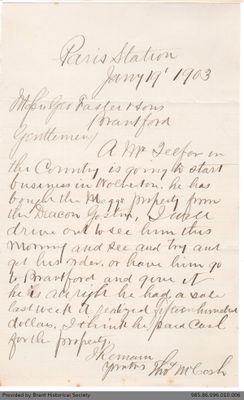 Paris Station
Jany 19' 1903
Messrs Geo Foster & Sons
Brantford
Gentlemen
A Mr Telfor in
the Country is going to start
business in Wolverton. he has
bought the Maggs property from
the Deacon Goslin, I will
drive out to see him this
morning and see and try and
get his order. or have him go
to Brantford and give it
he is all right he had a sale
last week it realized fifteen hundred
dollars. I think he paid Cash
for the property
I Remain
yours Thos McCosh
Provided by Brant Historical Society
985.86.096.010.006